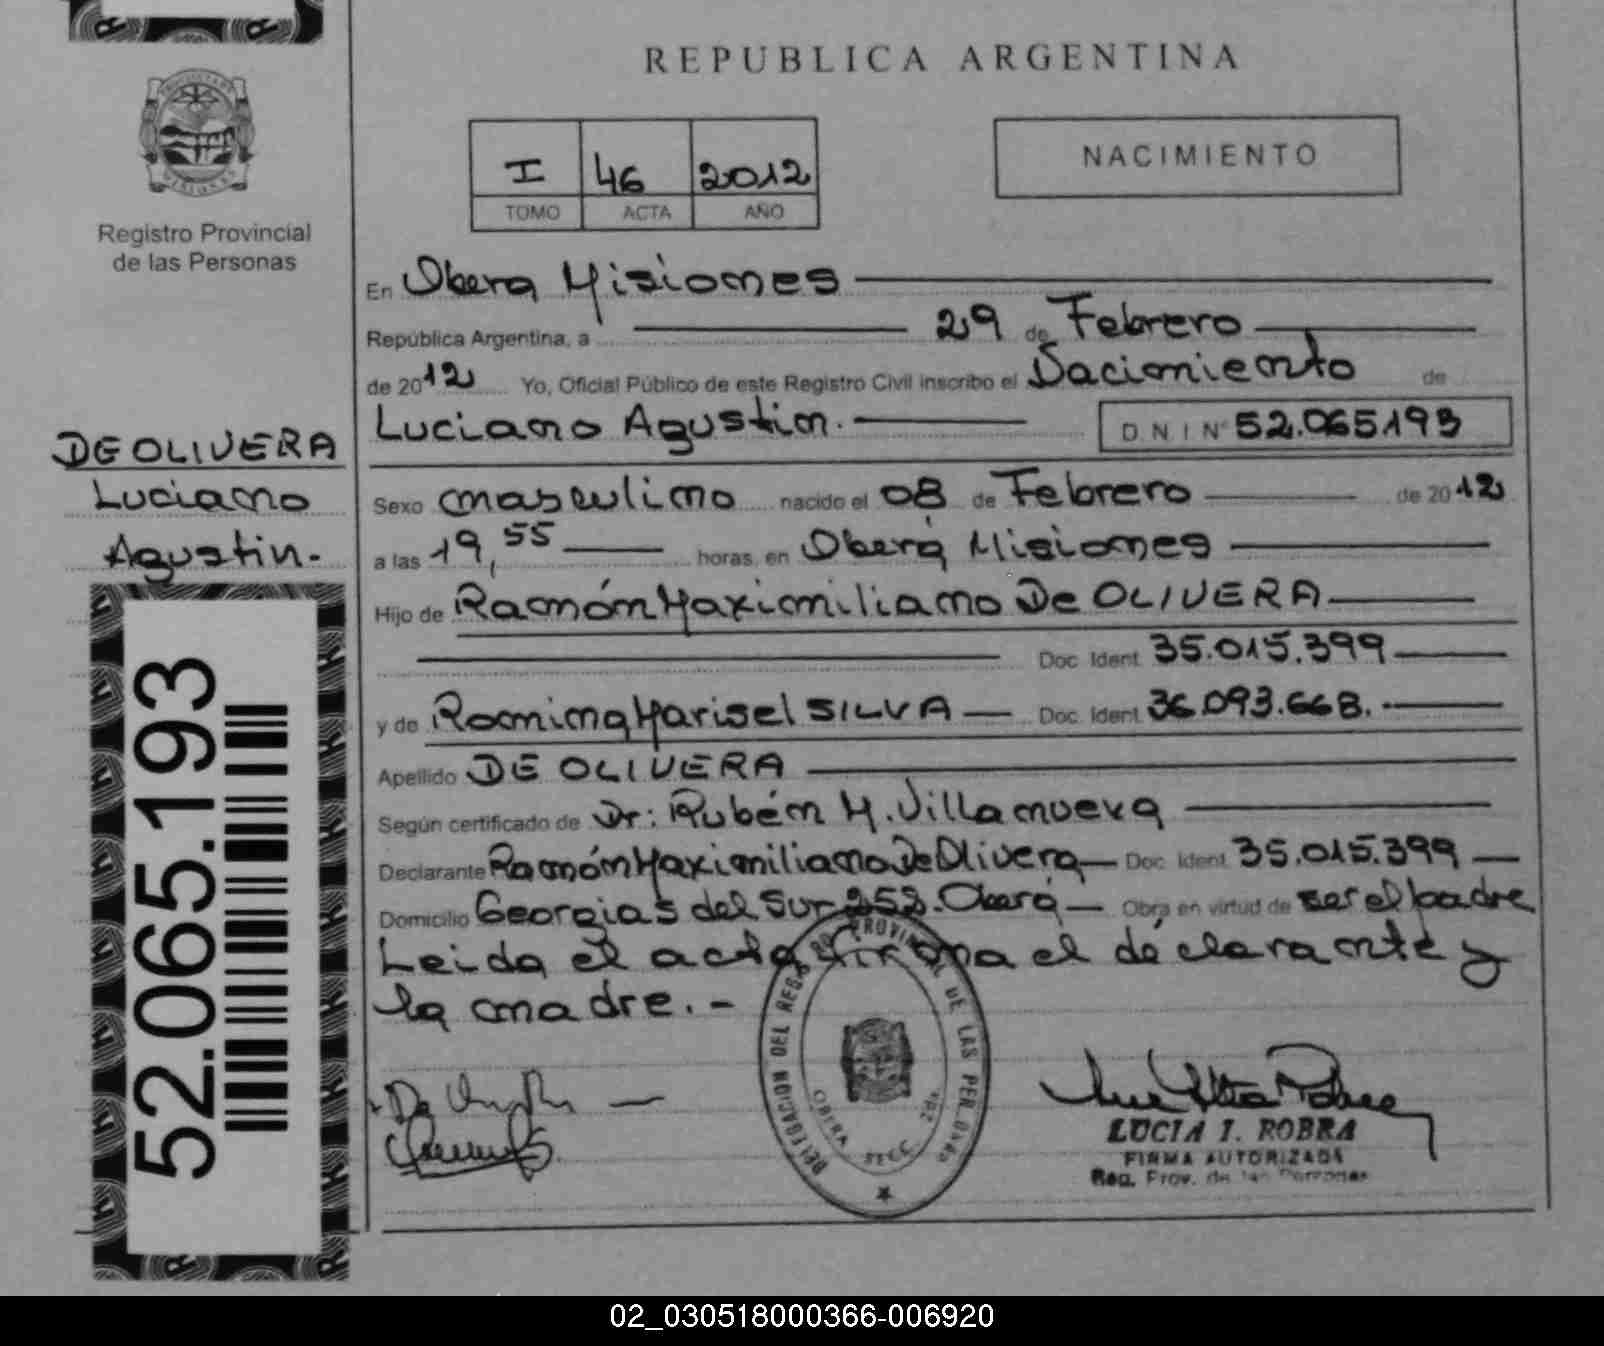 REPUBLICA ARGENTINA
PROVINCIA DE
MISIONES
Registro Provincial
de las Personas
I 46 2012
TOMO ACTA AÑO
NACIMIENTO
En Obera Misiones
República Argentina, a 29 de Febrero
de 2012 Yo, Oficial Público de este Registro Civil inscribo el Nacimiento de
Luciano Agustin. D.N.I Nº 52.065193
DE OLIVERA
Luciano
Agustin.-
Sexo masculino nacido el 08 de Febrero de 2012
a las 19,55 horas, en Oberá Misiones
Hijo de Ramón Maximiliano De OLIVERA
Doc. Ident. 35.015.399
y de Romina Marisel SILVA Doc. Ident. 36.093.668.
Apellido DE OLIVERA
Según certificado de Dr: Rubén M. Villanueva
Declarante Ramón Maximiliano De Olivera Doc. Ident. 35.015.399
Domicilio Georgias del Sur 252. Oberá Obra en virtud de ser el padre
Leida el acta firma el declarante y
la madre.-
DELEGACION DEL REGISTRO PROVINCIAL DE LAS PERSONAS
OBERA SECC. 2da.
LUCIA I. ROBRA
FIRMA AUTORIZADA
Reg. Prov. de las Personas
52.065.193
02_030518000366-006920